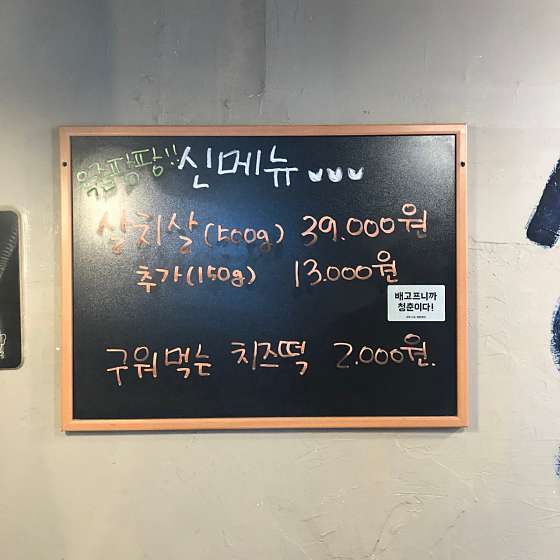 육즙팡팡!! 신메뉴
삼치살(500g) 39.000원
추가(150g) 13.000원
배고프니까
청춘이다!
구워먹는 치즈떡 2.000원.